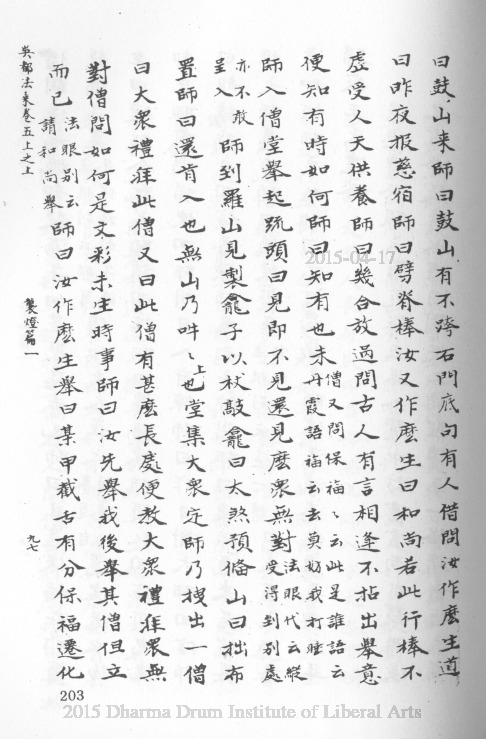 曰鼓山来師曰鼓山有不跨石門底句有人借問汝作麼生道
曰昨夜报慈宿師曰劈脊棒汝又作麼生曰和尚若此行棒不
虛受人天供養師曰幾合放過問古人有言相逢不拈出舉意
便知有時如何師曰知有也未僧又問保福〻云此是誰語云丹霞語福云去莫妨我打睡
師入僧堂舉起䟽頭曰見即不見還見麼衆無對法眼代云縱受得到別處
亦不敢呈入師到羅山見製龕子以杖敲龕曰太煞預俻山曰拙布
置師曰還肯入也無山乃吽〻上也堂集大衆定師乃拽出一僧
曰大衆禮拜此僧又曰此僧有甚麼長處便教大衆禮拜衆無
對僧問如何是文彩未生時事師曰汝先舉我後舉其僧但立
而已法眼別云請和尚舉師曰汝作麼生舉曰某甲截舌有分保福遷化
吳都法乘卷五上之上
燈篇一
九七
203
2015-04-17
2015 Dharma Drum Institute of Liberal Arts